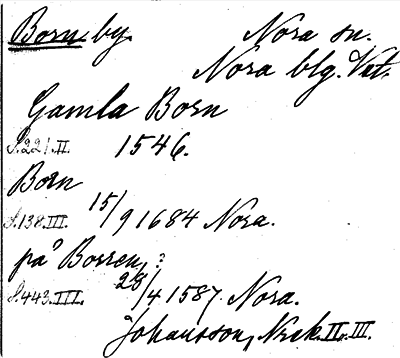 Born by. Nora sn.
Nora blg. Vst.
Gamla Born
S.221.II. 1546.
Born
S.138.III. 15/9 1684 Nora.
på Borren, ?
S.443.III. 28/4 1587. Nora.
Johansson, Nrek. II. III.